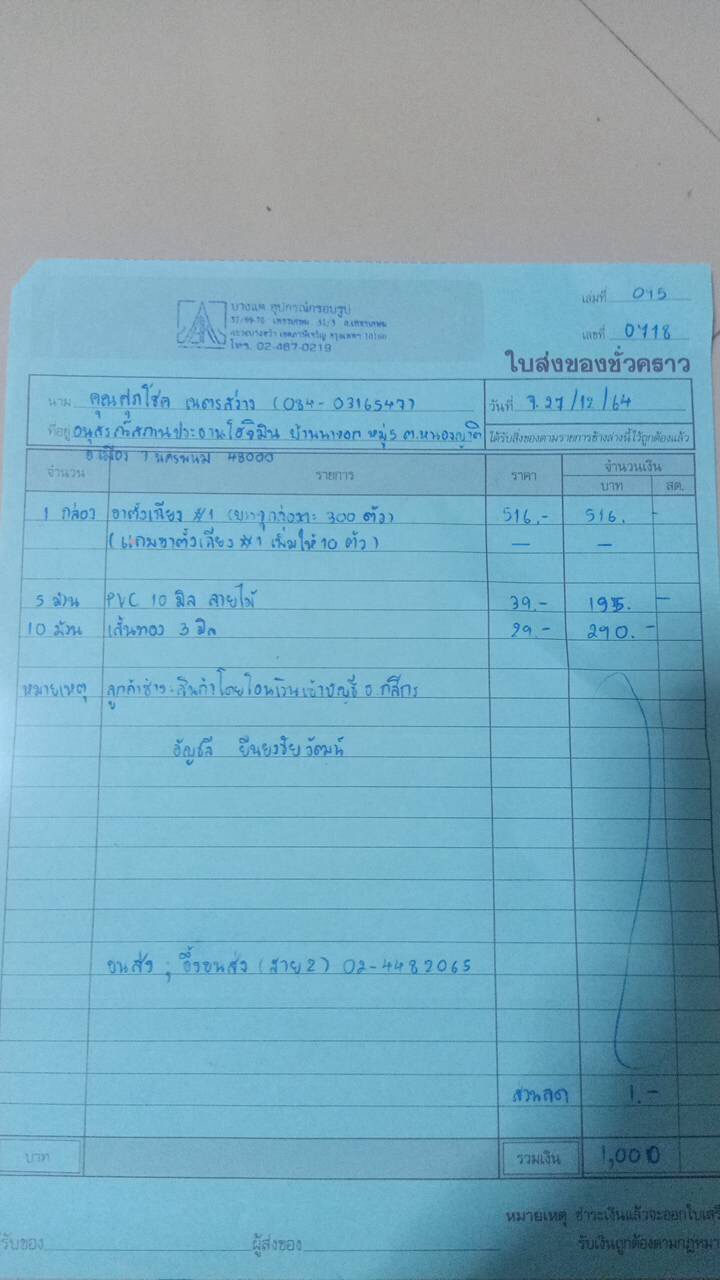 บางแค อุปกรณ์กรอบรูป
57/69-70 เพชรเกษม 31/3 ถ.เพชรเกษม
แขวงบางหว้า เขตภาษีเจริญ กรุงเทพฯ 10160
โทร. 02-467-0219
เล่มที่ 015
เลขที่ 0718
ใบส่งของชั่วคราว
นาม คุณศุภโชค เนตรสว่าง (084-0316547)
วันที่ จ.27/12/64
ที่อยู่ อนุสรณ์สถานประธานโฮจิมินห์ บ้านนาจอก หมู่5 ต.หนองญาติ
อ.เมือง จ.นครพนม 48000
ได้รับสิ่งของตามรายการข้างล่างนี้ไว้ถูกต้องแล้ว
จำนวน รายการ ราคา จำนวนเงิน
บาท สต.
1 กล่อง ขาตั้งเฉียง #1 (บรรจุกล่องละ 300 ตัว) 516.- 516. -
(แถมขาตั้งเฉียง #1 เพิ่มให้ 10 ตัว) — —
5 ม้วน PVC 10 มิล ลายไม้ 39.- 195. -
10 ม้วน เส้นทอง 3 มิล 29.- 290.-
หมายเหตุ ลูกค้าชำระสินค้าโดยโอนเงินเข้าบัญชี ธ.กสิกร
ธัญชลี ยืนยงชัยวัฒน์
ขนส่ง ; อึ้งขนส่ง (สาย2) 02-4482065
ส่วนลด 1.-
บาท รวมเงิน 1,000
หมายเหตุ ชำระเงินแล้วจะออกใบเสร็
รับของ ผู้ส่งของ รับเงินถูกต้องตามกฎหมา